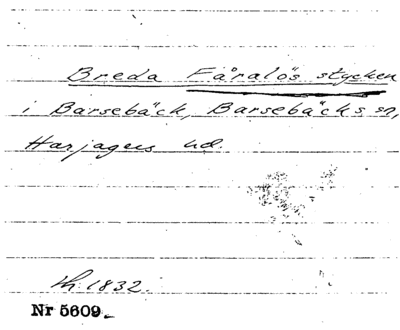 Breda Fåralös stycken
i Barsebäck, Barsebäcks sn,
Harjagers hd.
1832.
Nr 5609.